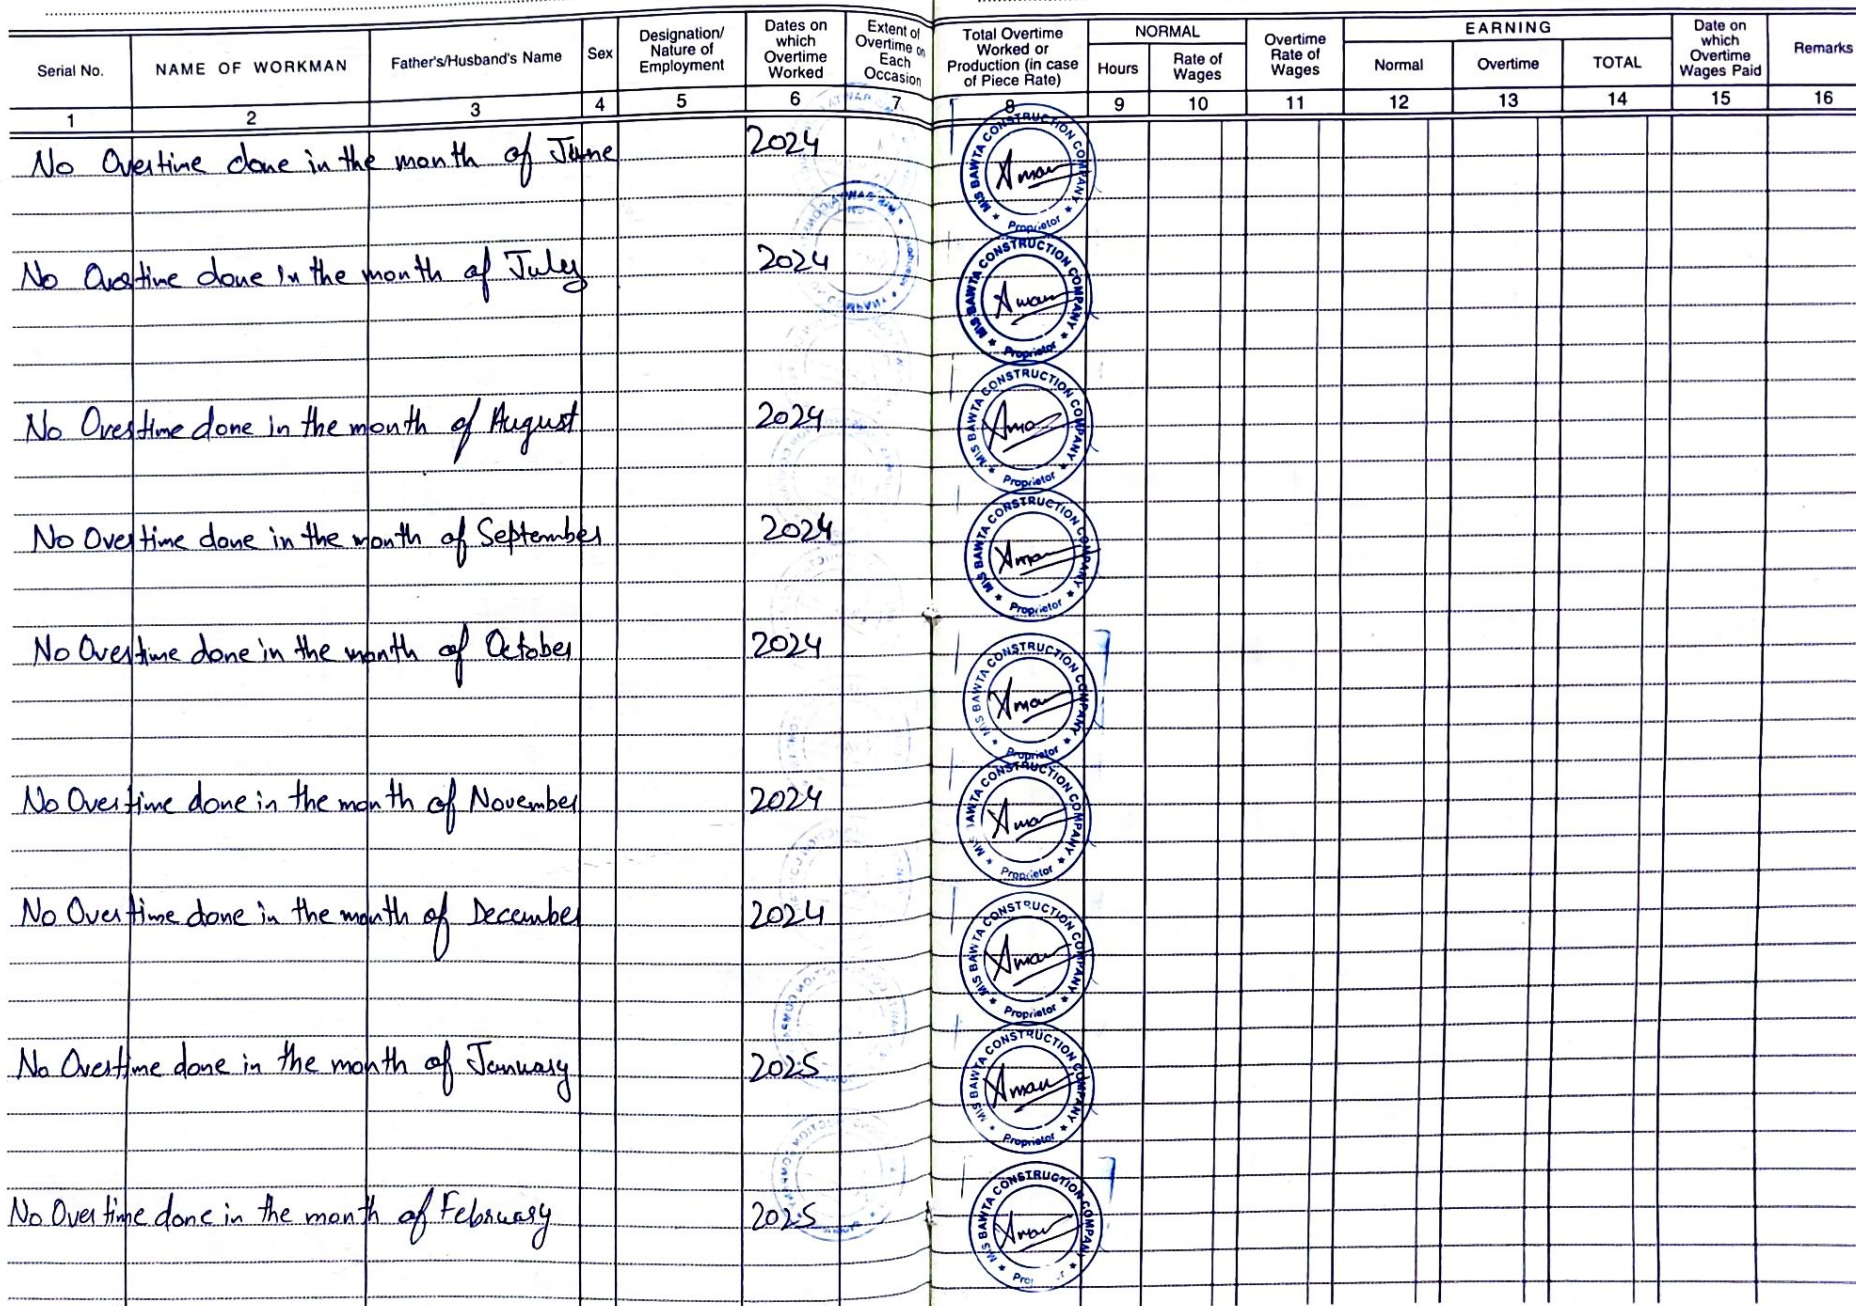 Serial No.
NAME OF WORKMAN
Father's/Husband's Name
Sex
Designation/
Nature of
Employment
Dates on
which
Overtime
Worked
Extent of
Overtime on
Each
Occasion
Total Overtime
Worked or
Production (in case
of Piece Rate)
NORMAL
Hours
Rate of
Wages
Overtime
Rate of
Wages
EARNING
Normal
Overtime
TOTAL
Date on
which
Overtime
Wages Paid
Remarks
1 2 3 4 5 6 7 8 9 10 11 12 13 14 15 16
No Overtime done in the month of June 2024
M/S BAWTA CONSTRUCTION COMPANY
Aman
Proprietor
No Overtime done in the month of July 2024
M/S BAWTA CONSTRUCTION COMPANY
Aman
Proprietor
No Overtime done in the month of August 2024
M/S BAWTA CONSTRUCTION COMPANY
Aman
Proprietor
No Overtime done in the month of September 2024
M/S BAWTA CONSTRUCTION COMPANY
Aman
Proprietor
No Overtime done in the month of October 2024
M/S BAWTA CONSTRUCTION COMPANY
Aman
Proprietor
No Overtime done in the month of November 2024
M/S BAWTA CONSTRUCTION COMPANY
Aman
Proprietor
No Overtime done in the month of December 2024
M/S BAWTA CONSTRUCTION COMPANY
Aman
Proprietor
No Overtime done in the month of January 2025
M/S BAWTA CONSTRUCTION COMPANY
Aman
Proprietor
No Overtime done in the month of February 2025
M/S BAWTA CONSTRUCTION COMPANY
Aman